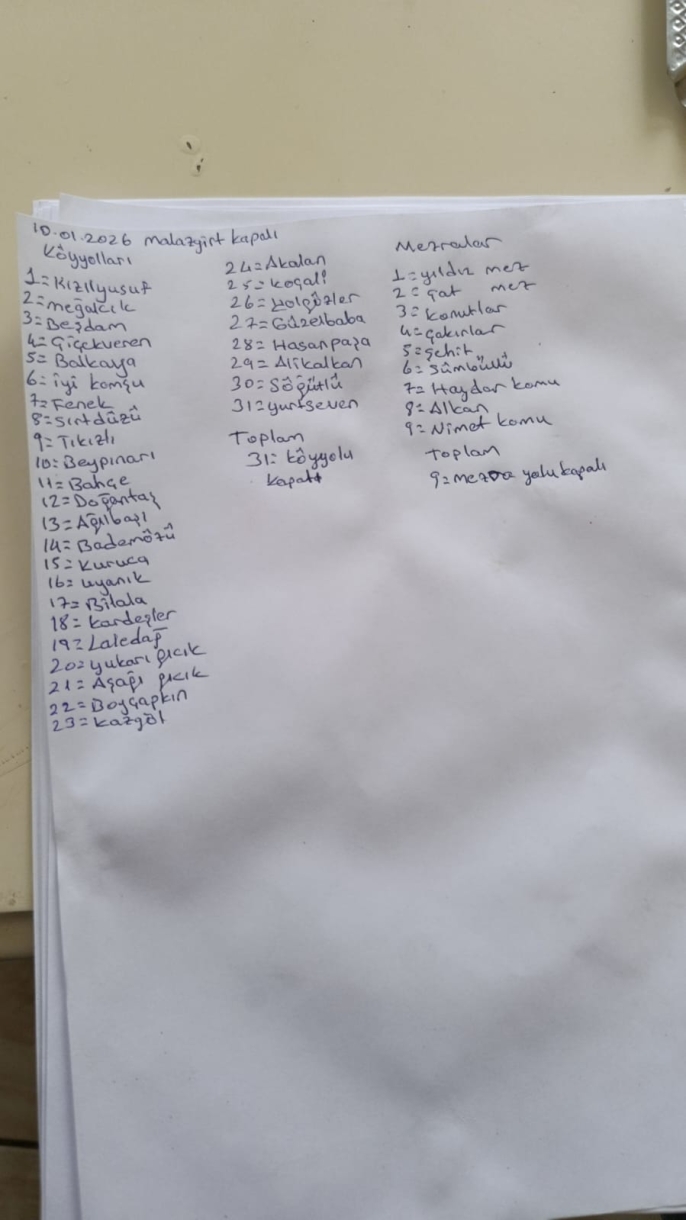 10.01.2026 malazgirt kapalı
Köyyolları
1=Kızılyusuf
2=meğalcık
3=Beşdam
4=Çiçekveren
5=Balkaya
6=iyi komşu
7=Fenek
8=Sırtdüzü
9=Tıkızlı
10=Beypınarı
11=Bahçe
12=Doğantaş
13=Ağılbaşı
14=Bademözü
15=Kuruca
16=uyanık
17=Bilala
18=kardeşler
19=Laledağ
20=yukarı gıcık
21=Aşağı gıcık
22=Boyçapkın
23=kazgöl
24=Akalan
25=koçali
26=Yolgözler
27=Güzelbaba
28=Hasanpaşa
29=Alikalkan
30=Söğütlü
31=yurtseven
Toplam
31=köyyolu
kapalı
Mezralar
1=yıldız mez
2=çat mez
3=konutlar
4=çakırlar
5=şehit
6=sümbüllü
7=Haydar komu
8=Alkan
9=Nimet komu
Toplam
9=mezra yolu kapalı